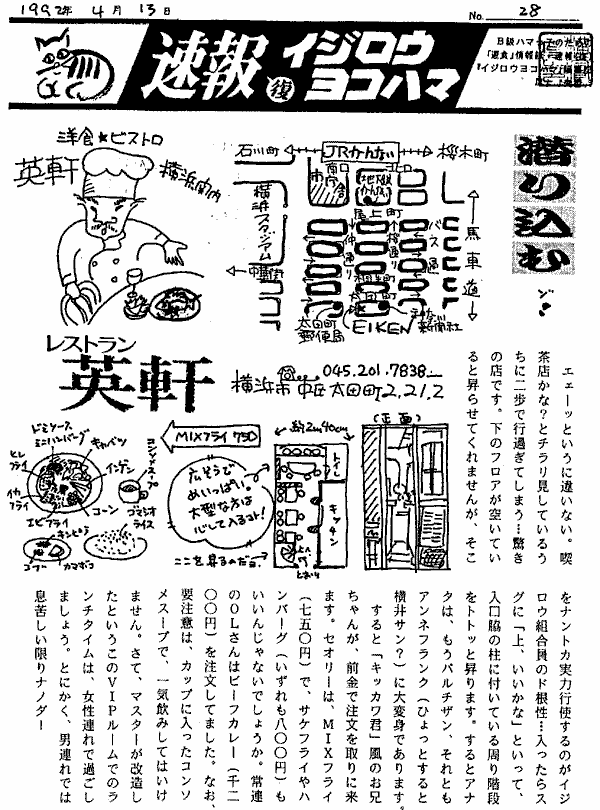 1992年 4月 13日
No. 28
速報 復 イジロウ
ヨコハマ
B級ハマ
洋食★ビストロ
英軒
横浜関内
石川町
JRかんない
桜木町
南口
北口
市庁舎
地下鉄かんない
横浜スタジアム
尾上町
相生町
太田町
馬車道
太田町郵便局
EIKEN
潜り込む
ゾ!!
レストラン
英軒
☎045.201.7838
横浜市中区太田町2.21.2
ドミソース
ミニハンバーグ
キャベツ
ヒレフライ
インゲン
イカフライ
コーン
エビフライ
コンソメスープ
ゴマシオライス
キンピラ
コブー
カマボコ
MIXフライ 750
広そうで
めいっぱい。
大型な方は
心して入るコト!
ここを昇るのだヨ。
約2m40cm
トイレ
キッチン
(正面)
エェーッというに違いない。喫
茶店かな?とチラリ見しているう
ちに二歩で行過ぎてしまう…驚き
の店です。下のフロアが空いてい
ると昇らせてくれませんが、そこ
をナントカ実力行使するのがイジ
ロウ組合員のド根性…入ったらス
グに「上、いいかな」といって、
入口脇の柱に付いている周り階段
をトトッと昇ります。するとアナ
タは、もうパルチザン、それとも
アンネフランク(ひょっとすると
横井サン?)に大変身であります。
すると「キッカワ君」風のお兄
ちゃんが、前金で注文を取りに来
ます。セオリーは、MIXフライ
(七五〇円)で、サケフライやハ
ンバーグ(いずれも八〇〇円)も
いいんじゃないでしょうか。常連
のOLさんはビーフカレー(千二
〇〇円)を注文してました。なお、
要注意は、カップに入ったコンソ
メスープで、一気飲みしてはいけ
ません。さて、マスターが改造し
たというこのVIPルームでのラ
ンチタイムは、女性連れで過ごし
ましょう。とにかく、男連れでは
息苦しい限りナノダー